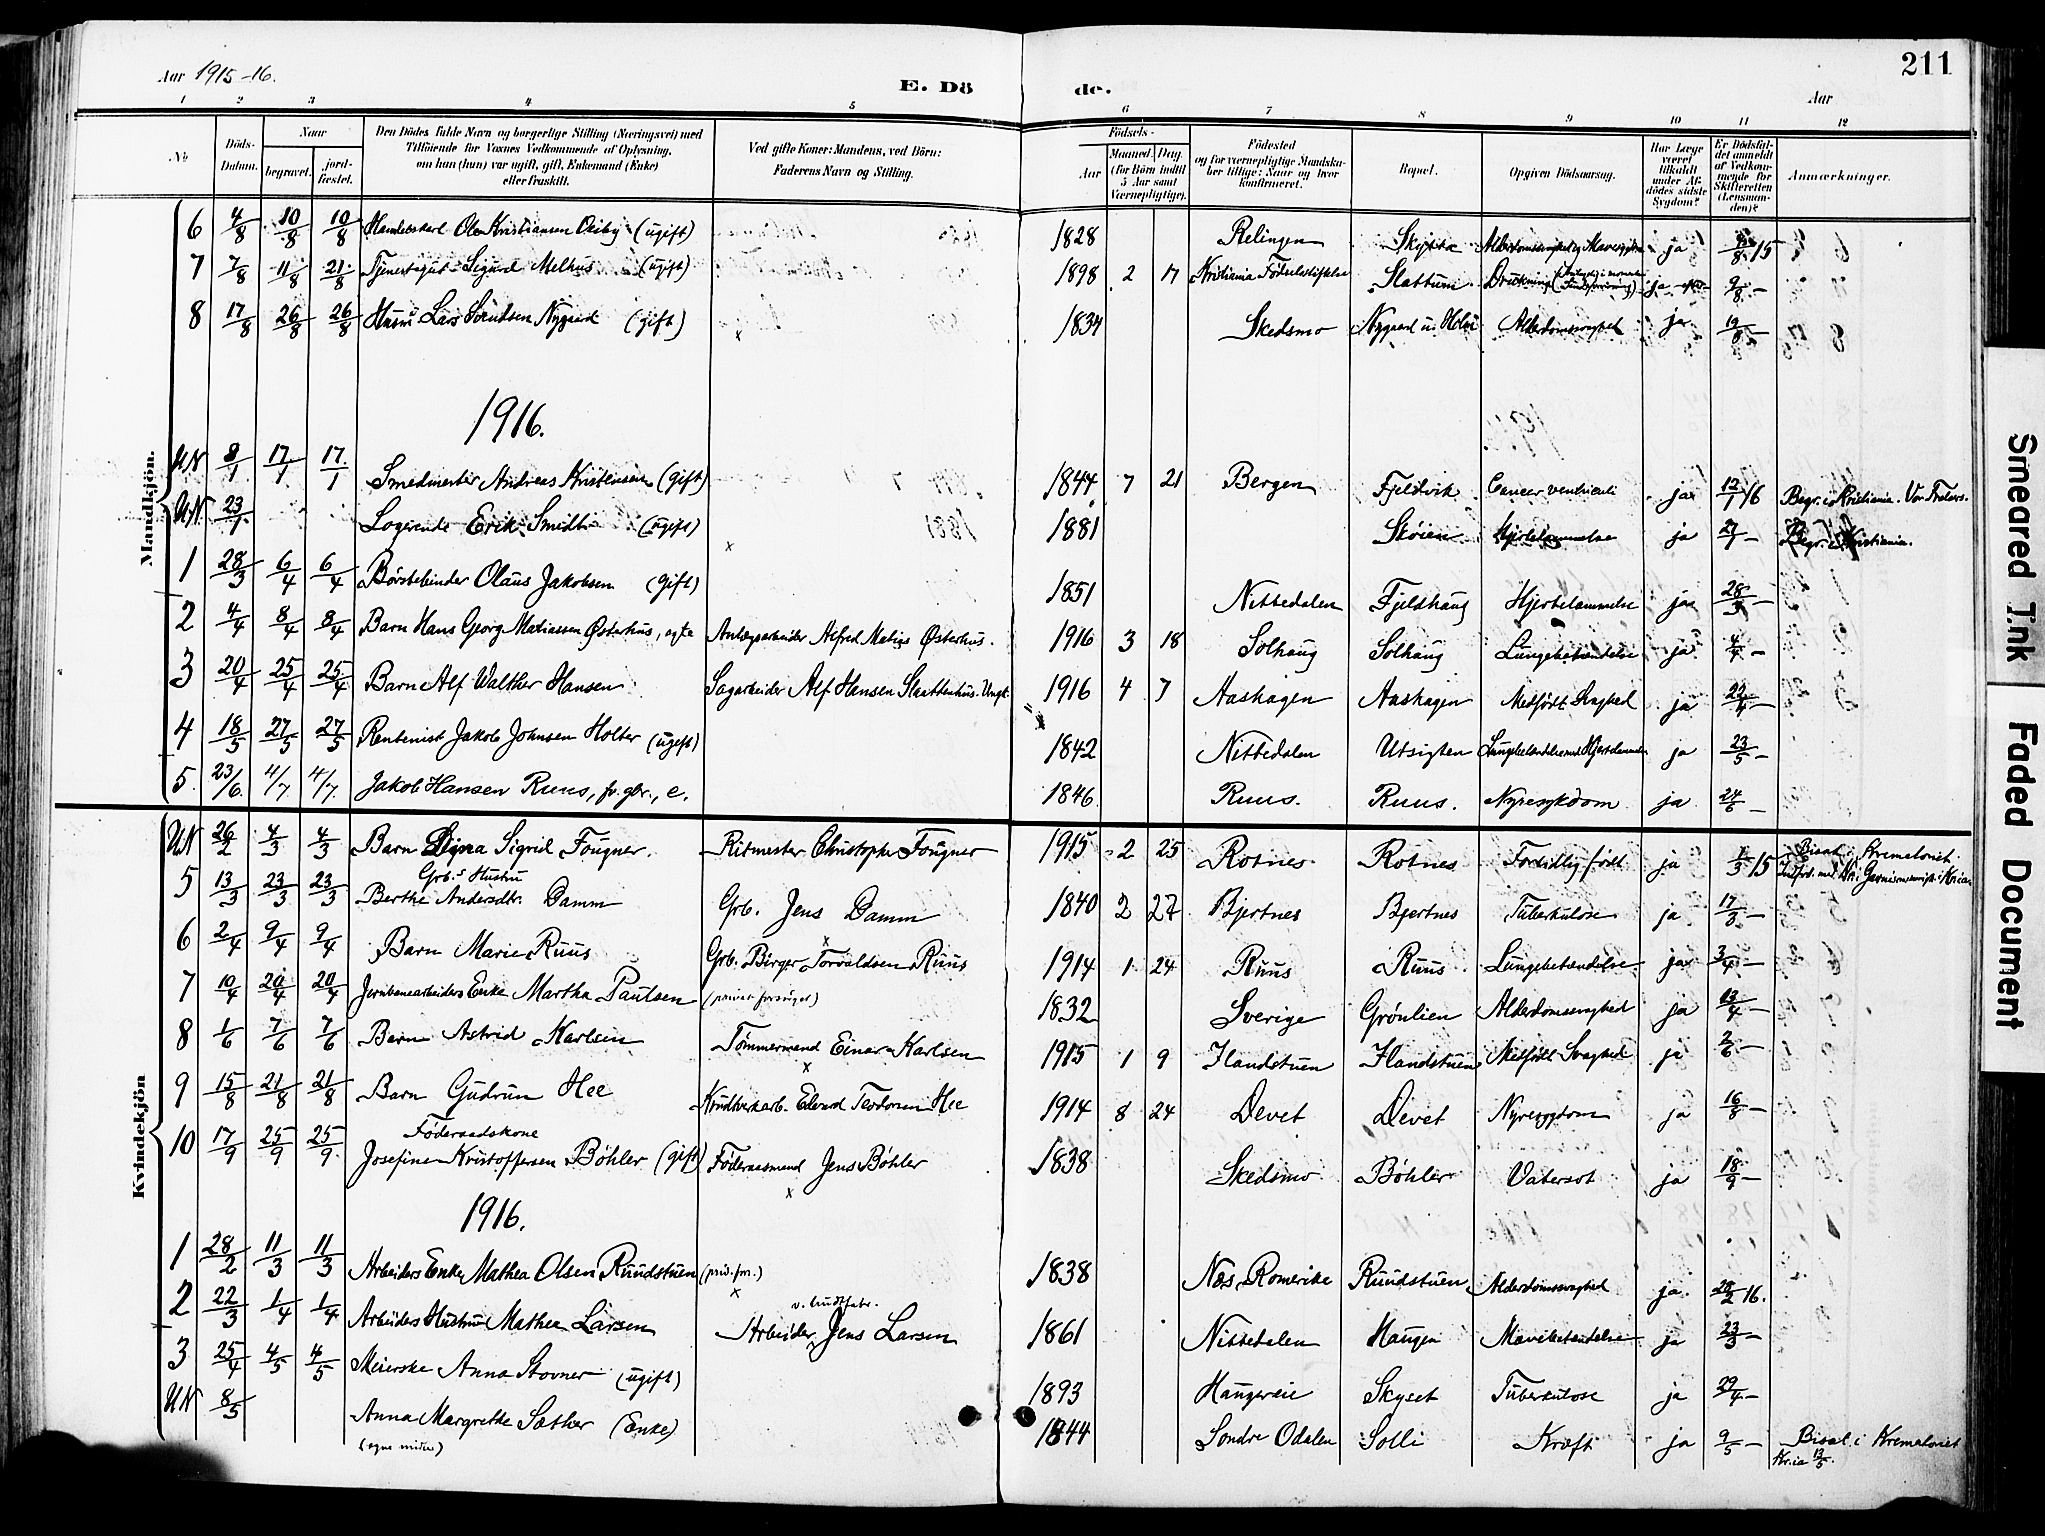 Aar 1915-16.
E. Dö
de.
Aar
211
1 2 3 4 5 6 7 8 9 10 11 12
No
Döds-Datum.
Naar
begravet.
jord-fæstet.
Den Dödes fulde Navn og borgerlige Stilling (Næringsvei) med
Tilföiende for Voxnes Vedkommende af Oplysning,
om han (hun) var ugift, gift, Enkemand (Enke)
eller fraskilt.
Ved gifte Koner: Mandens, ved Börn:
Faderens Navn og Stilling.
Födsels-
Aar
Maaned. Dag.
(for Börn indtil
5 Aar samt
Værnepligtige).
Födested
og for værnepligtige Mandska-
ber tillige: Naar og hvor
konfirmeret.
Bopæl.
Opgiven Dödsaarsag.
Har Læge
været
tilkaldt
under Af-
dödes sidste
Sygdom?
Er Dödsfal-
det anmeldt
af Vedkom-
mende for
Skifteretten
(Lensman-
den)?
Anmærkninger.
Mandkjön.
6 4/8 10/8 10/8 Handelskarl Ole Kristiansen (ugift) 1828 Relingen Skytta Alderdomssvaghed, ja 15
7 7/8 11/8 21/8 Tjenestegut Sigurd Melhus (ugift) 1898 2 17 Kristiania Fødselsstiftelse Slattum Drukning ja 9/8 –
8 17/8 26/8 26/8 Husm. Lars Nygaard (gift) 1834 Skedsmo Nygaard u. Holm Alderdomssvaghed ja 19/8 –
1916.
UN 8/1 17/1 17/1 Smedmester Andreas Kristensen (gift) 1844 7 21 Bergen Fjeldvik Cancer ventriculi ja 12/1 16 Begr. i Kristiania. Vor Frelsers.
UN 23/1 Logerende Erik Smidt (ugift) 1881 Skøien Hjertelammelse ja 27/1 – Begr. i Kristiania.
1 28/3 6/4 6/4 Børstebinder Olaus Jakobsen (gift) 1851 Nittedalen Fjeldhaug Hjertelammelse ja 28/3 –
2 4/4 8/4 8/4 Barn Hans Georg Matiassen Østerhus, egte Anlægsarbeider Alfred Matias Østerhus. 1916 3 18 Solhaug Solhaug Lungebetændelse ja 4/4 –
3 20/4 25/4 25/4 Barn Alf Walther Hansen Sagarbeider Alf Hansen Slaattenhus. Ungk. 1916 4 7 Aashagen Aashagen Medfødt Svaghed ja 22/4 –
4 18/5 27/5 27/5 Rentenist Jakob Johnsen Holter (ugift) 1842 Nittedalen Utsigten Lungebetændelse ja 23/5 –
5. 23/6. 4/7. 4/7. Jakob Hansen Ruus, fv. gbr., e. 1846. Ruus. Ruus. Nyresykdom ja 24/6 –
Kvindekjön
UN 26/2 4/3 4/3 Barn Sigrid Fougner. Ritmester Christopher Fougner 1915 2 25 Rotnes Rotnes Fortidlig født ja 1/3 15 Bisat i Krematoriet.
5 13/3 23/3 23/3 Grb.s Hustru Berthe Andersdtr. Damm Grb. Jens Damm 1840 2 27 Bjertnes Bjertnes Tuberkulose ja 17/3 –
6 2/4 9/4 9/4 Barn Marie Ruus Grb. Birger Torvaldsen Ruus 1914 1 24 Ruus Ruus Lungebetændelse ja 3/4 –
7 10/4 20/4 20/4 Jernbanearbeiders Enke Martha Paulsen (privat forsørget) 1832 Sverige Grønlien Alderdomssvaghed ja 13/4 –
8 1/6 7/6 7/6 Barn Astrid Karlsen Tømmermand Einar Karlsen 1915 1 9 Handstuen Handstuen Medfødt Svaghed ja 2/6 –
9 15/8 21/8 21/8 Barn Gudrun Hee Krudtverkarb. Edvard Teodorsen Hee 1914 8 24 Devet Devet Nyresygdom ja 16/8 –
10 17/9 25/9 25/9 Føderaadskone Josefine Kristoffersen Bøhler (gift) Føderaadsmand Jens Bøhler 1838 Skedsmo Bøhler Vatersot ja 18/9 –
1916.
1 28/2 11/3 11/3 Arbeiders Enke Mathea Olsen Ruudstuen (priv. for.) 1838 Næs, Romerike Ruudstuen Alderdomssvaghed ja 28/2 16.
2 22/3 1/4 1/4 Arbeiders Hustru Mathea Larsen Arbeider v. Krudtfabr. Jens Larsen 1861 Nittedalen Haugen Mavebetændelse ja 23/3 –
3 25/4 4/5 4/5 Meierske Anna Stovner (ugift) 1893 Haugereie Skyset Tuberkulose ja 29/4 –
UN 8/5 Anna Margrethe Sæther (Enke) (egne midler) 1844 Søndre Odalen Solli Kræft ja 9/5 – Bisat i Krematoriet Kr.ia 12/5.
Smeared Ink
Faded Document